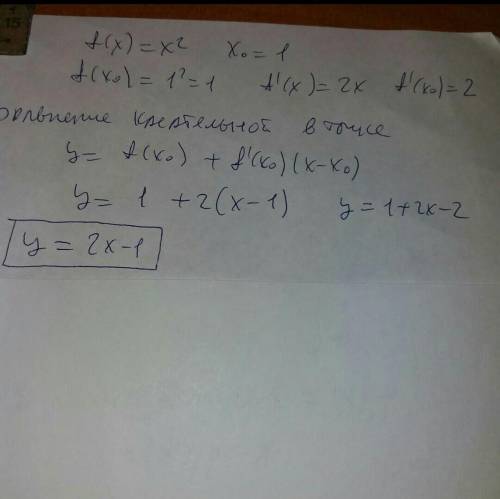 15
f(x) = x² x₀ = 1
f(x₀) = 1² = 1 f'(x) = 2x f'(x₀) = 2
уравнение касательной в точке
y = f(x₀) + f'(x₀)(x-x₀)
y = 1 + 2(x-1) y = 1+2x-2
y = 2x-1